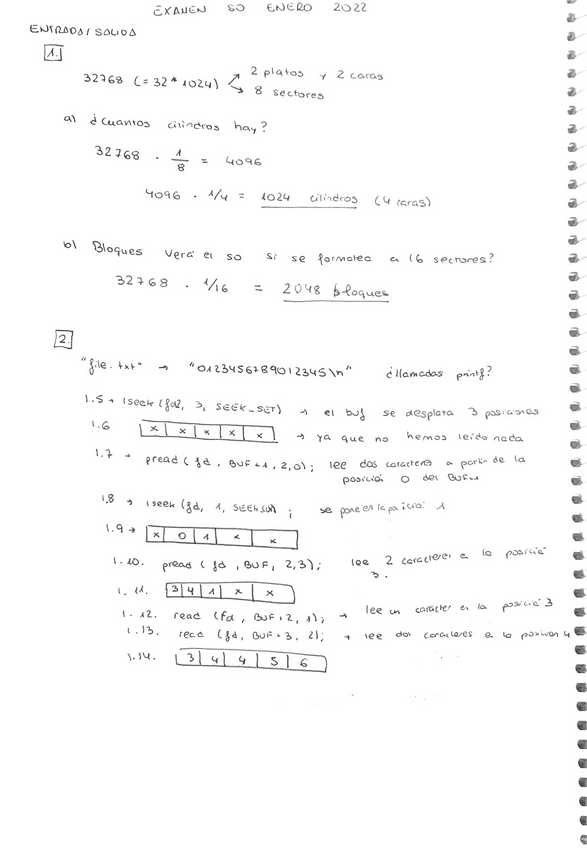 EXAMEN SO ENERO 2022
ENTRADA/SALIDA
1.
32768 (= 32 * 1024) 2 platos y 2 caras
8 sectores
a) ¿Cuantos cilindros hay?
32768 · 1/8 = 4096
4096 · 1/4 = 1024 cilindros (4 caras)
b) Bloques verá el SO si se formatea a 16 sectores?
32768 · 1/16 = 2048 bloques
2.
"file.txt" → "0123456789012345\n" ¿llamadas printf?
1.5 → lseek (fd2, 3, SEEK_SET) → el buf se desplaza 3 posiciones
1.6 x x x x x → ya que no hemos leido nada
1.7 → pread (fd, BUF+1, 2, 0); lee dos caracteres a partir de la
posición 0 del BUF+1
1.8 → lseek (fd, 1, SEEK_SET); se pone en la posición 1
1.9 → x 0 1 x x
1.10. pread (fd, BUF, 2, 3); lee 2 caracteres a la posición
3.
1.11. 3 4 1 x x
1.12. read (fd, BUF+2, 1); → lee un caracter en la posició 3
1.13. read (fd, BUF+3, 2); → lee dos caracteres a la posición 4
1.14. 3 4 4 5 6